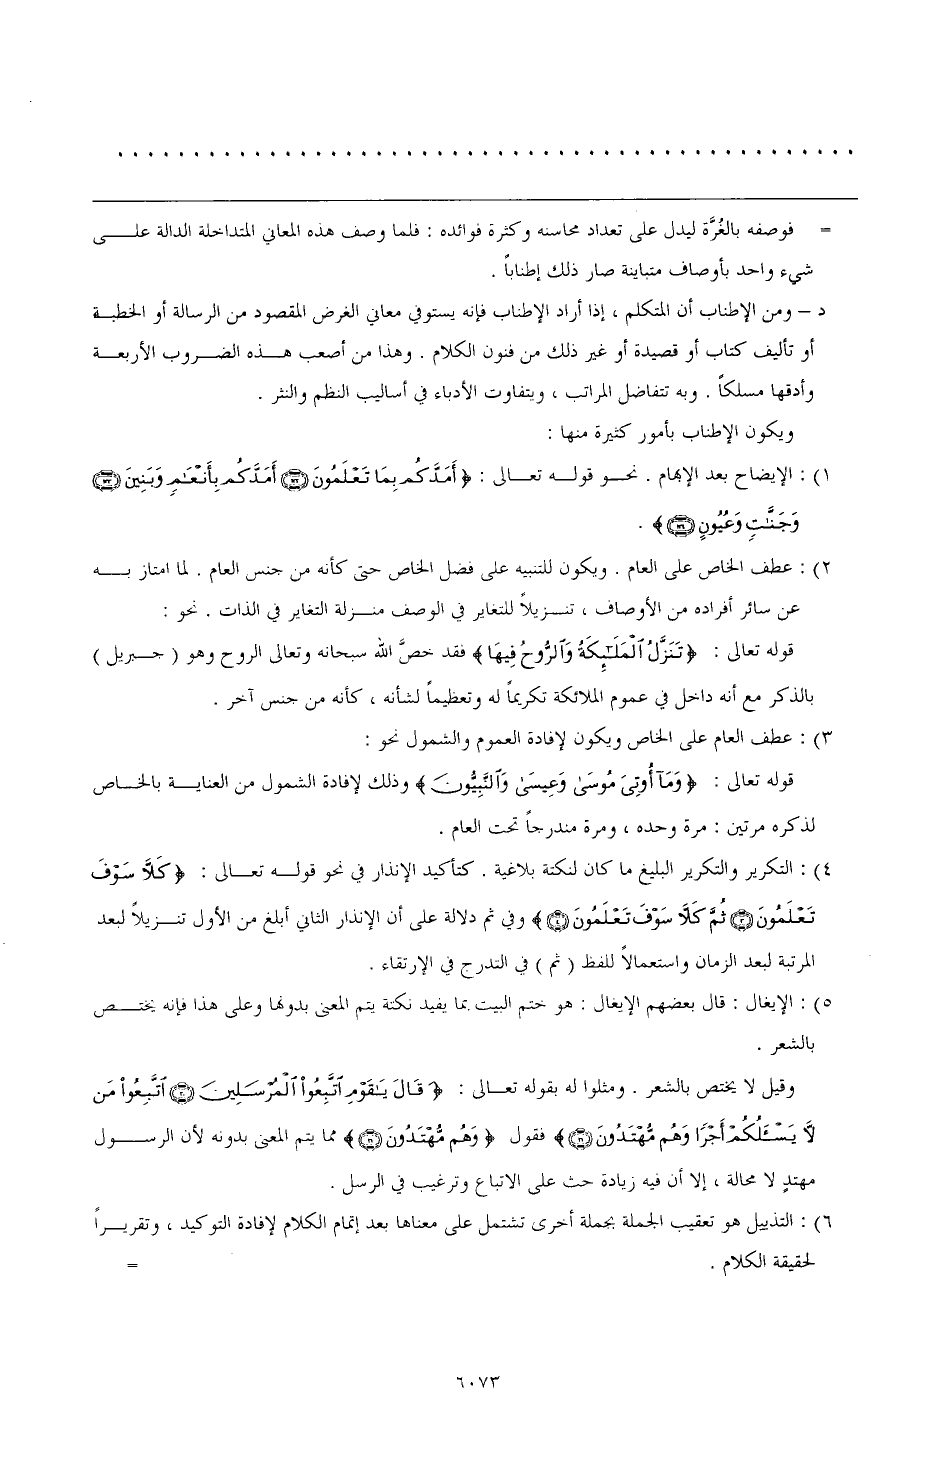 = فوصفه بالغُرَّة ليدل على تعداد محاسنه وكثرة فوائده : فلما وصف هذه المعاني المتداخلة الدالة على
شيء واحد بأوصاف متباينة صار ذلك إطناباً .
د – ومن الإطناب أن المتكلم ، إذا أراد الإطناب فإنه يستوفي معاني الغرض المقصود من الرسالة أو الخطبة
أو تأليف كتاب أو قصيدة أو غير ذلك من فنون الكلام . وهذا من أصعب هذه الضروب الأربعة
وأدقها مسلكاً . وبه تتفاضل المراتب ، ويتفاوت الأدباء في أساليب النظم والنثر .
ويكون الإطناب بأمور كثيرة منها :
١) : الإيضاح بعد الإبهام . نحو قوله تعالى : ﴿ أَمَدَّكُم بِمَا تَعْلَمُونَ ﴿١٣٢﴾ أَمَدَّكُم بِأَنْعَٰمٍ وَبَنِينَ ﴿١٣٣﴾
وَجَنَّٰتٍ وَعُيُونٍ ﴿١٣٤﴾ ﴾ .
٢) : عطف الخاص على العام . ويكون للتنبيه على فضل الخاص حتى كأنه من جنس العام . لما امتاز به
عن سائر أفراده من الأوصاف ، تنزيلاً للتغاير في الوصف منزلة التغاير في الذات . نحو :
قوله تعالى : ﴿ تَنَزَّلُ ٱلْمَلَٰٓئِكَةُ وَٱلرُّوحُ فِيهَا ﴾ فقد خصَّ الله سبحانه وتعالى الروح وهو ( جبريل )
بالذكر مع أنه داخل في عموم الملائكة تكريماً له وتعظيماً لشأنه ، كأنه من جنس آخر .
٣) : عطف العام على الخاص ويكون لإفادة العموم والشمول نحو :
قوله تعالى : ﴿ وَمَآ أُوتِيَ مُوسَىٰ وَعِيسَىٰ وَٱلنَّبِيُّونَ ﴾ وذلك لإفادة الشمول من العناية بالخاص
لذكره مرتين : مرة وحده ، ومرة مندرجاً تحت العام .
٤) : التكرير والتكرير البليغ ما كان لنكتة بلاغية . كتأكيد الإنذار في نحو قوله تعالى : ﴿ كَلَّا سَوْفَ
تَعْلَمُونَ ﴿٣﴾ ثُمَّ كَلَّا سَوْفَ تَعْلَمُونَ ﴿٤﴾ ﴾ وفي ثم دلالة على أن الإنذار الثاني أبلغ من الأول تنزيلاً لبعد
المرتبة لبعد الزمان واستعمالاً للفظ ( ثم ) في التدرج في الإرتقاء .
٥) : الإيغال : قال بعضهم الإيغال : هو ختم البيت بما يفيد نكتة يتم المعنى بدونها وعلى هذا فإنه يختص
بالشعر .
وقيل لا يختص بالشعر . ومثلوا له بقوله تعالى : ﴿ قَالَ يَٰقَوْمِ ٱتَّبِعُوا۟ ٱلْمُرْسَلِينَ ﴿٢٠﴾ ٱتَّبِعُوا۟ مَن
لَّا يَسْـَٔلُكُمْ أَجْرًا وَهُم مُّهْتَدُونَ ﴿٢١﴾ ﴾ فقول ﴿ وَهُم مُّهْتَدُونَ ﴿٢١﴾ ﴾ مما يتم المعنى بدونه لأن الرسول
مهتدٍ لا محالة ، إلا أن فيه زيادة حث على الاتباع وترغيب في الرسل .
٦) : التذييل هو تعقيب الجملة بجملة أخرى تشتمل على معناها بعد إتمام الكلام لإفادة التوكيد ، وتقريراً
لحقيقة الكلام . =
٦٠٧٣